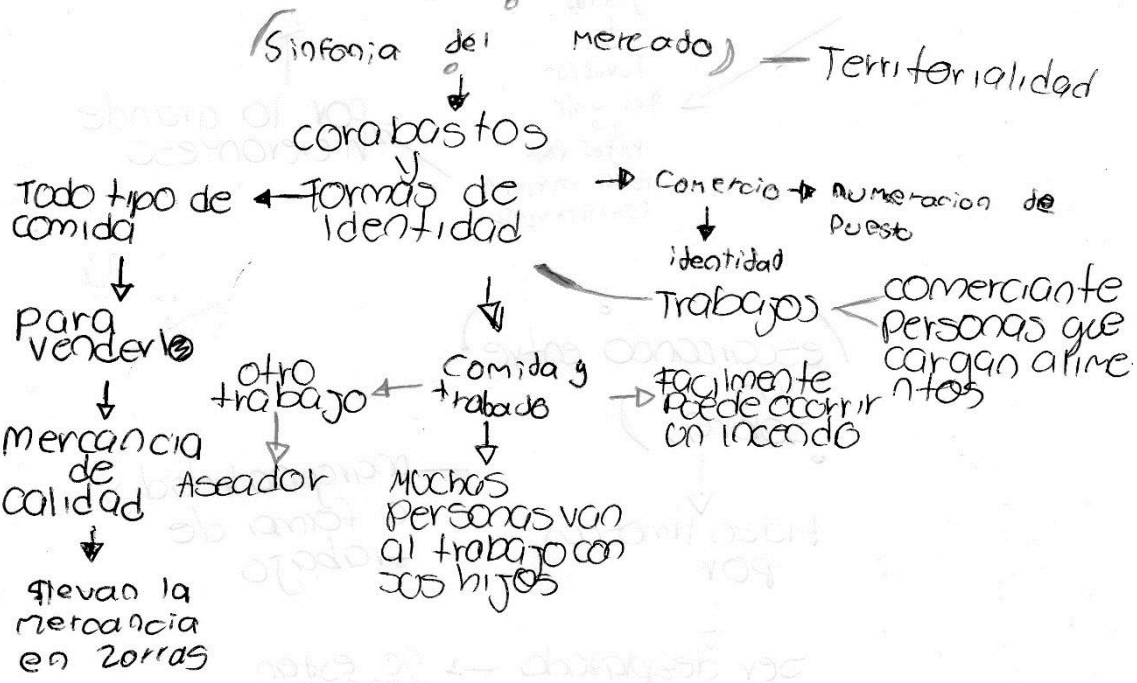 (Sinfonia del Mercado) — Territorialidad
corabastos
y
Formas de
Identidad
Todo tipo de
comida
para
venderlo
mercancia
de
calidad
llevan la
mercancia
en zorras
Comercio → numeracion de
Puesto
identidad
Trabajos
comerciante
personas que
cargan alime-
ntos
Comida y
trabado
otro
trabajo
Aseador
Muchas
personas van
al trabajo con
sus hijos
Facilmente
Puede ocorrir
un incendo